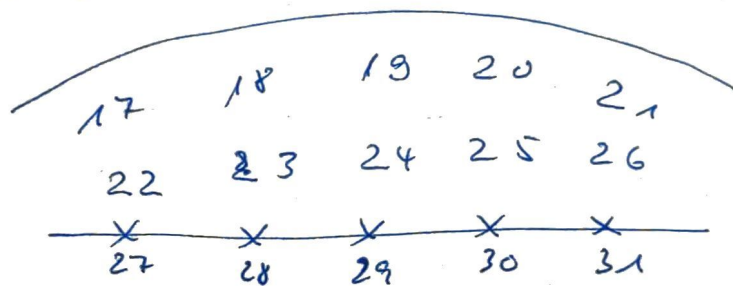 17 18 19 20 21
22 23 24 25 26
27 28 29 30 31